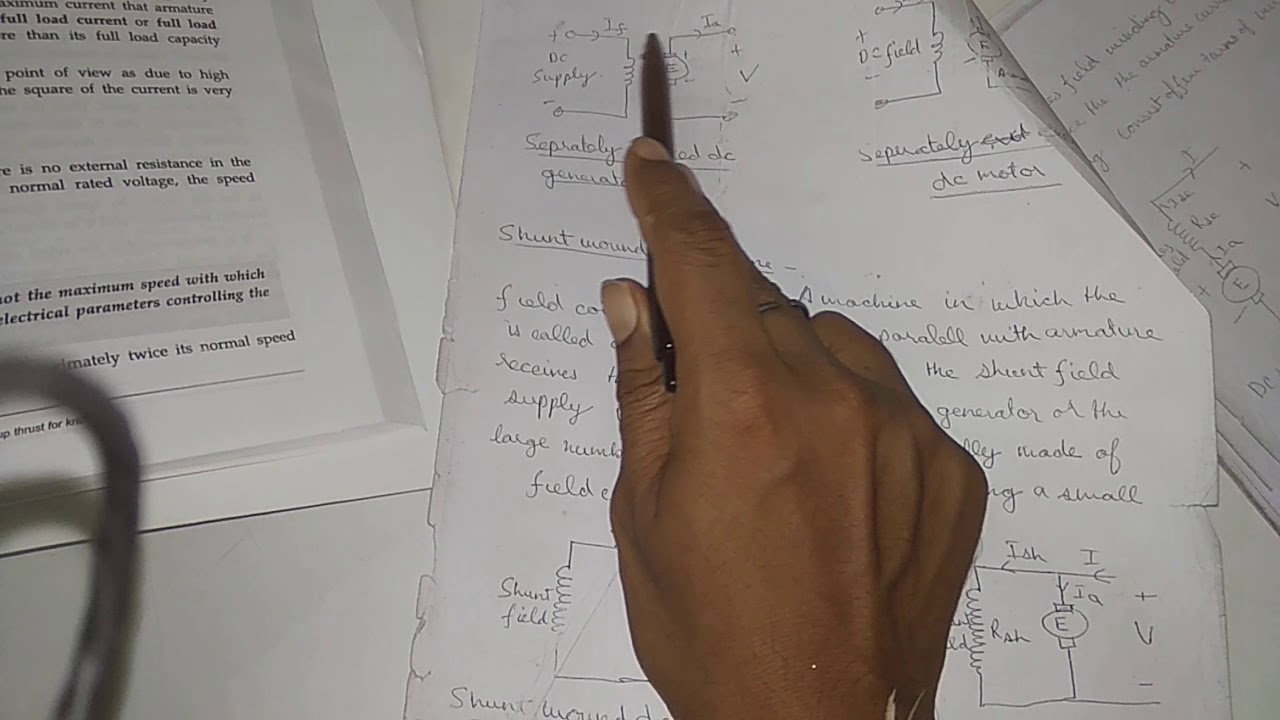 aximum current that armature
full load current or full load
re than its full load capacity
point of view as due to high
he square of the current is very
re is no external resistance in the
normal rated voltage, the speed
not the maximum speed with which
electrical parameters controlling the
mately twice its normal speed
up thrust for
+ If
DC
Supply
-
Ia
E
+
V
-
Seprately ed dc
generat
+
DC field
-
E
Seperately
dc motor
Shunt wound
field co A machine in which the
is called paralell with armature
receives the shunt field
supply generator or the
large numb lly made of
field ng a small
Shunt
field
Shunt wound d
Ish I
Ia
Rsh
E
+
V
-
as field winding
the armature curr
consist of few turns of
I
+
Rse
Ia
E
+
-
V
DC